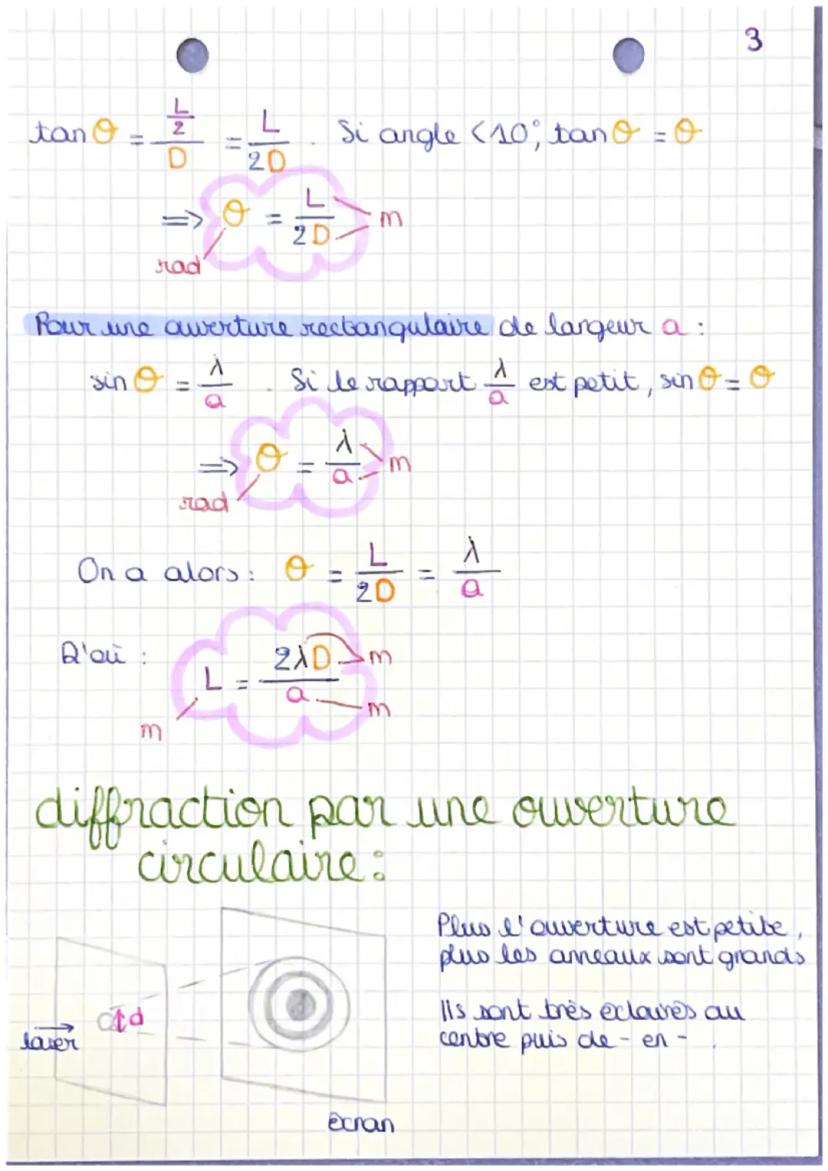 3
tanθ = (L/2)/D = L/2D . Si angle < 10°, tanθ = θ
=> θ = L/2D m
rad
Pour une ouverture rectangulaire de largeur a :
sinθ = λ/a . Si le rapport λ/a est petit, sinθ = θ
=> θ = λ/a m
rad
On a alors : θ = L/2D = λ/a
D'où : L = 2λD/a m
m
m
diffraction par une ouverture
circulaire :
Plus l'ouverture est petite,
plus les anneaux sont grands
Ils sont très éclairés au
centre puis de - en - .
d
laser
écran